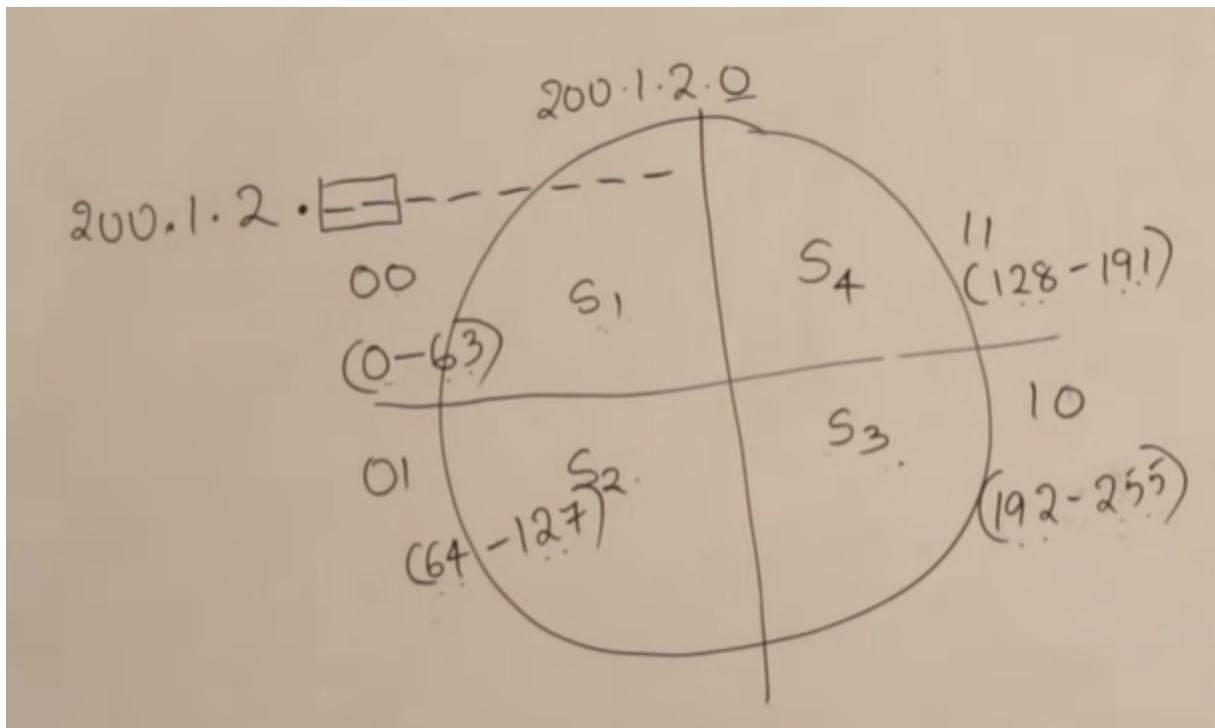 200.1.2.0
200.1.2.
00
(0-63)
S1
S4
11
(128-191)
01
(64-127)
S2
S3
10
(192-255)